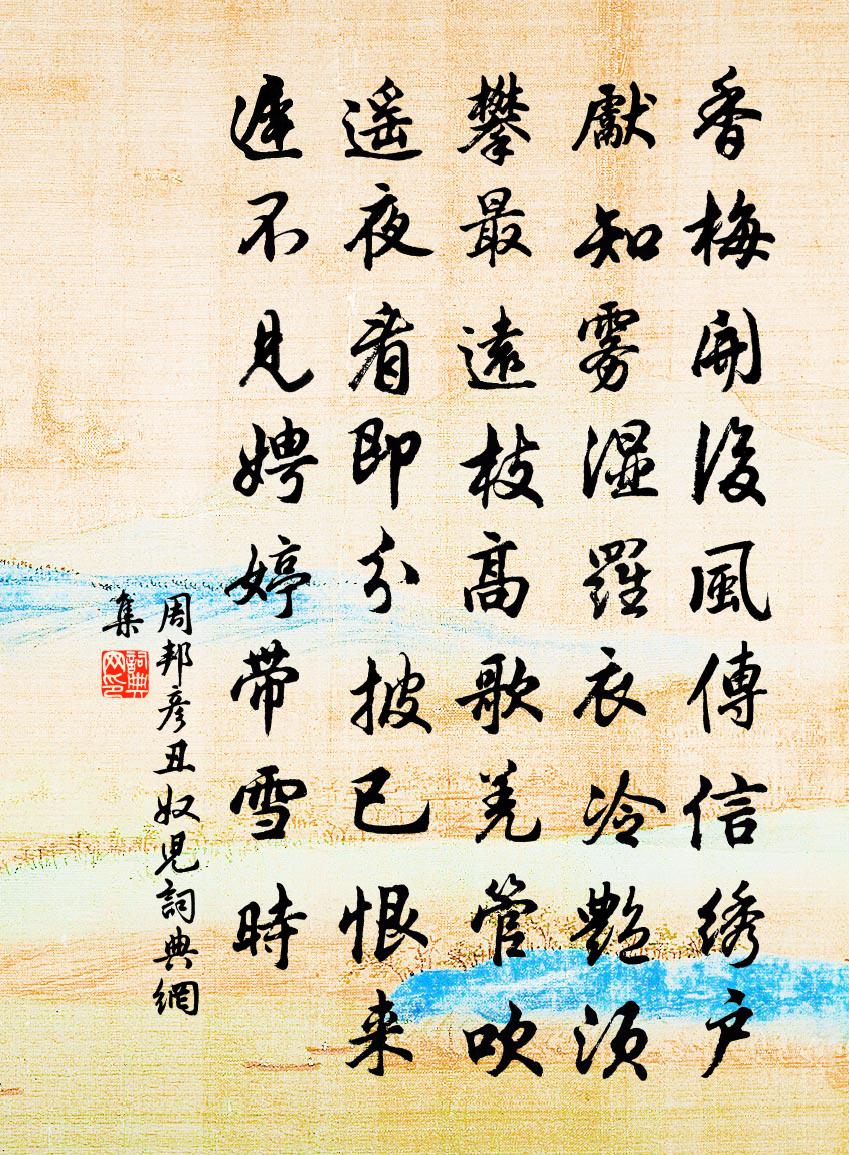 香梅開後風傳信綉户
獻知雾湿羅衣冷艷須
攀最遠枝高歌羌管吹
遥夜看即分披已恨来
遲不見娉婷帶雪時
周邦彦丑奴児詞典網
集
詞典網印